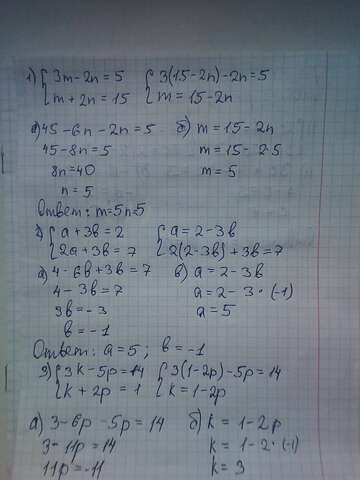 1) { 3m - 2n = 5   { 3(15 - 2n) - 2n = 5
{ m + 2n = 15   { m = 15 - 2n
а) 45 - 6n - 2n = 5   б) m = 15 - 2n
45 - 8n = 5   m = 15 - 2·5
8n = 40   m = 5
n = 5
Ответ: m=5 n=5
2) { a + 3в = 2   { a = 2 - 3в
{ 2a + 3в = 7   { 2(2 - 3в) + 3в = 7
а) 4 - 6в + 3в = 7   в) a = 2 - 3в
4 - 3в = 7   a = 2 - 3·(-1)
3в = -3   a = 5
в = -1
Ответ: a = 5; в = -1
3) { 3k - 5p = 14   { 3(1 - 2p) - 5p = 14
{ k + 2p = 1   { k = 1 - 2p
а) 3 - 6p - 5p = 14   б) k = 1 - 2p
3 - 11p = 14   k = 1 - 2·(-1)
11p = -11   k = 3